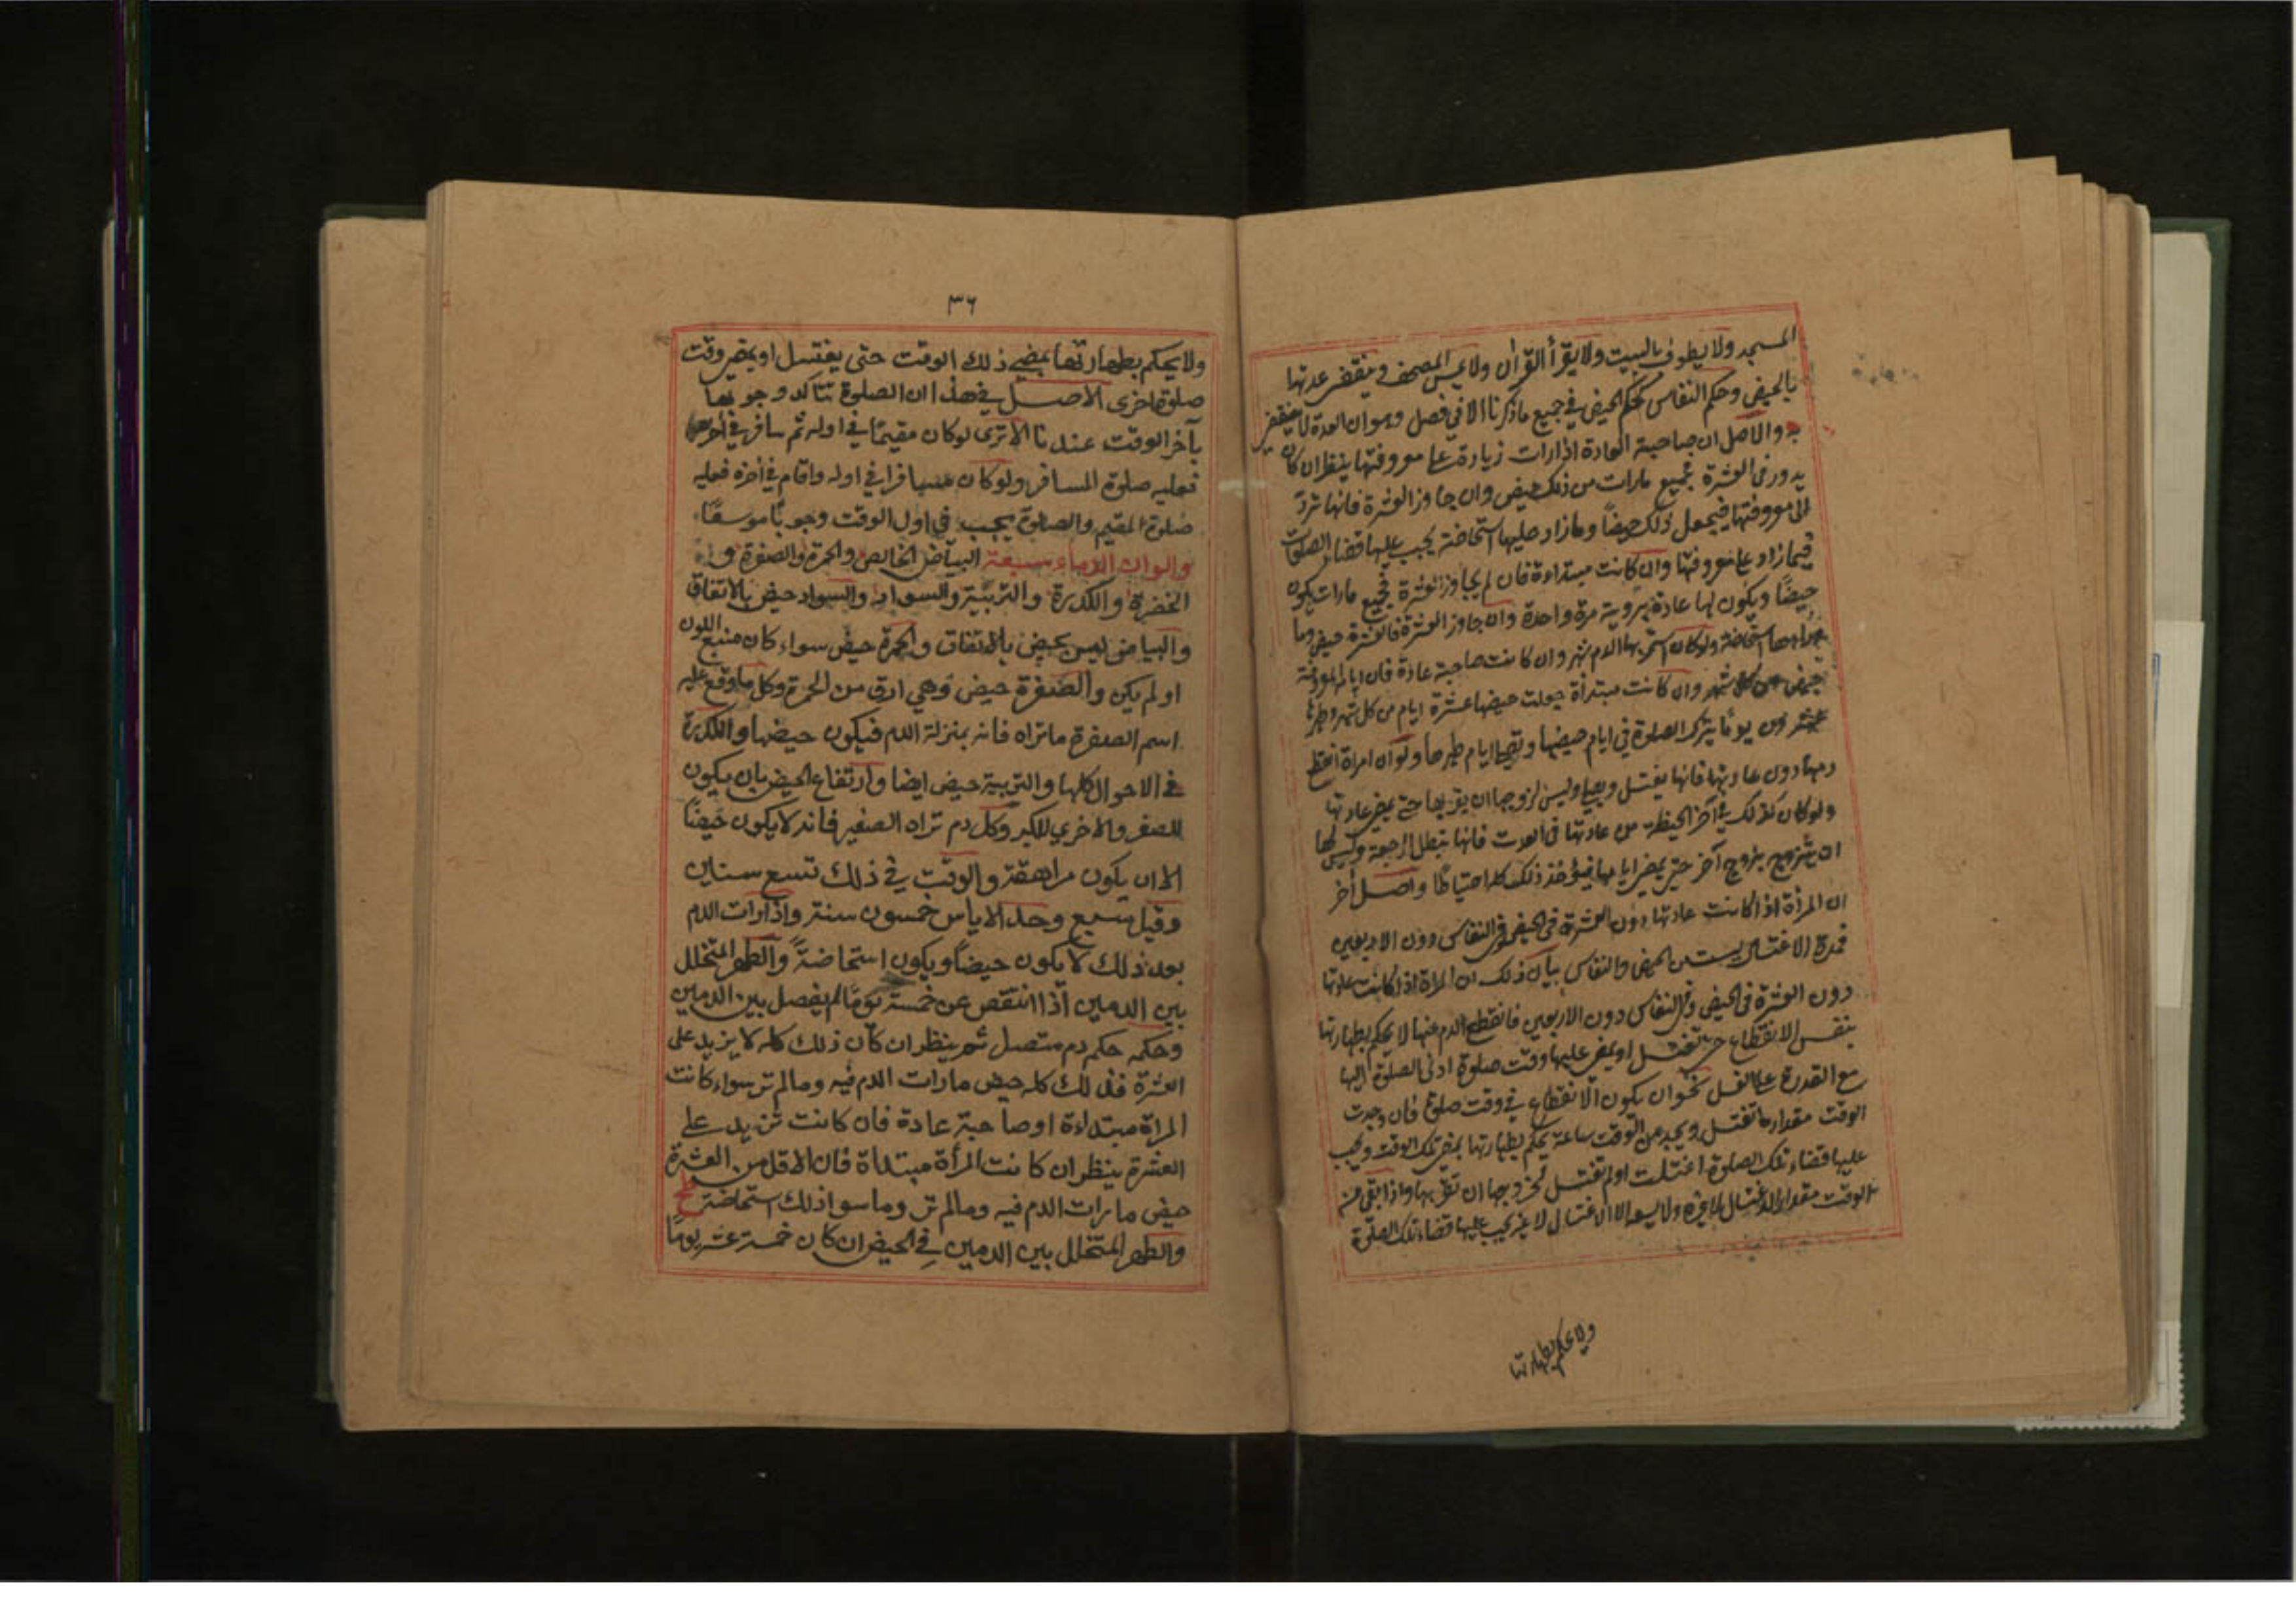 المسجد ولا يطوف بالبيت ولا يقرأ القرآن ولا يمس المصحف وينقضي عدتها
بالحيض وحكم النفاس كحكم الحيض في جميع ما ذكرنا الا في فصل وهو ان العدة لا ينقضي
به والاصل ان صاحبة العادة اذا رات زيادة على معروفتها ينظر ان كان
يدور في العشرة فجميع مارات من ذلك حيض وان جاوز العشرة فانها ترد
الى معروفتها فيجعل ذلك حيضا وما زاد عليها استحاضة يجب عليها قضاء الصلوات
فيما زاد على معروفتها وان كانت مبتداءة فان لم يجاوز العشرة فجميع مارات يكون
حيضا ويكون لها عادة بروية مرة واحدة وان جاوز العشرة فالعشرة حيض وما
استحاضة ولو كان استمر بها الدم شهر وان كانت صاحبة عادة فان ايام المعروفة
حيض من كل شهر وان كانت مبتدأة جعلت حيضها عشرة ايام من كل شهر وطهرها
عشرون يوما يترك الصلوة في ايام حيضها وتصلي ايام طهرها ولو ان امراة انقطع
دمها دون عادتها فانها يغتسل ويصلي وليس لزوجها ان يقربها حتى يمضي عادتها
ولو كان كذلك في آخر الحيضة من عادتها في العدت فانها يبطل الرجعة وليس لها
ان يتزوج بزوج آخر حتى يمضي ايامها فيؤخذ ذلك كله احتياطا واصل أخر
ان المرأة اذا كانت عادتها دون العشرة في الحيض وفي النفاس دون الاربعين
فمدة الاغتسال ليست من الحيض والنفاس بيان ذلك ان المراة اذا كانت عادتها
دون العشرة في الحيض وفي النفاس دون الاربعين فانقطع الدم عنها لا يحكم بطهارتها
بنفس الانقطاع حتى تغتسل او يمضي عليها وقت صلوة ادنى الصلوة اليها
مع القدرة على الغسل نحو ان يكون الانقطاع في وقت صلوة فان وجدت
الوقت مقدار ما تغتسل ويجد من الوقت ساعة يحكم بطهارتها بمضي تلك الوقت ويجب
عليها قضاء تلك الصلوة اغتسلت اولم تغتسل لزوجها ان تقربها واذا بقي من
الوقت مقدار الاغتسال لا غيره ولا يسع الا الاغتسال لا غير يجب عليها قضاء تلك الصلوة
ولا يحكم بطهارتها
٣٦
ولا يحكم بطهارتها بمضي ذلك الوقت حتى يغتسل او يمضي وقت
صلوة اخرى الاصل في هذا ان الصلوة تتاكد وجوبها
بآخر الوقت عندنا الا ترى لو كان مقيما في اوله ثم سافر في أخرها
فعليه صلوة المسافر ولو كان مسافرا في اوله واقام في أخره فعليه
صلوة المقيم والصلوة يجب في اول الوقت وجوبا موسعا
والوان الدماء سبعة البياض الخالص والحمرة والصفرة و
الخضرة والكدرة والتربية والسواد والسواد حيض بالاتفاق
والبياض ليس بحيض بالاتفاق والحمرة حيض سواء كان منبع اللون
او لم يكن والصفرة حيض وهي ارق من الحمرة وكل ما وقع عليه
اسم الصفرة ماتراه فانه بمنزلة الدم فيكون حيضها والكدرة
في الاحوال كلها والتربية حيض ايضا وارتفاع الحيض بان يكون
للصغر والاخرى للكبر وكل دم تراه الصغير فانه لا يكون حيضا
الا ان يكون مراهقة والوقت في ذلك تسع سنين
وقيل سبع وحد الاياس خمسون سنة واذا رات الدم
بعد ذلك لا يكون حيضا ويكون استحاضة والطهر المتخلل
بين الدمين أذا انتقص عن خمسة يوما لم يفصل بين الدمين
وحكمه حكم دم متصل ثم ينظر ان كان ذلك كله لا يزيد على
العشرة فذلك كله حيض مارات الدم فيه ومالم تر سواء كانت
المراة مبتداءة او صاحبة عادة فان كانت تزيد على
العشرة ينظر ان كانت المرأة مبتداة فان الاقل من العشرة
حيض مارات الدم فيه ومالم تر وما سوا ذلك استحاضة
والطهر المتخلل بين الدمين في الحيض ان كان خمسة عشر يوما